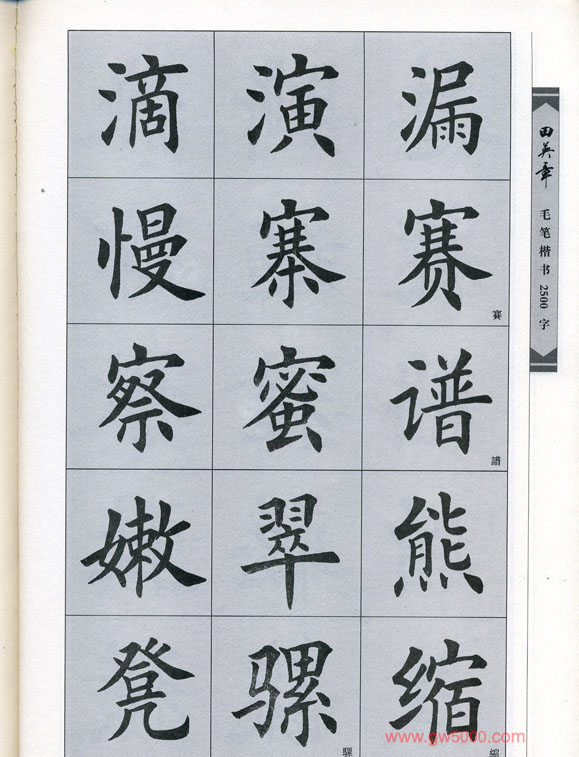 滴 演 漏
慢 寨 赛
賽
察 蜜 谱
譜
嫩 翠 熊
凳 骡 缩
騾
縮
田英章 毛笔楷书2500字
www.gw5000.com